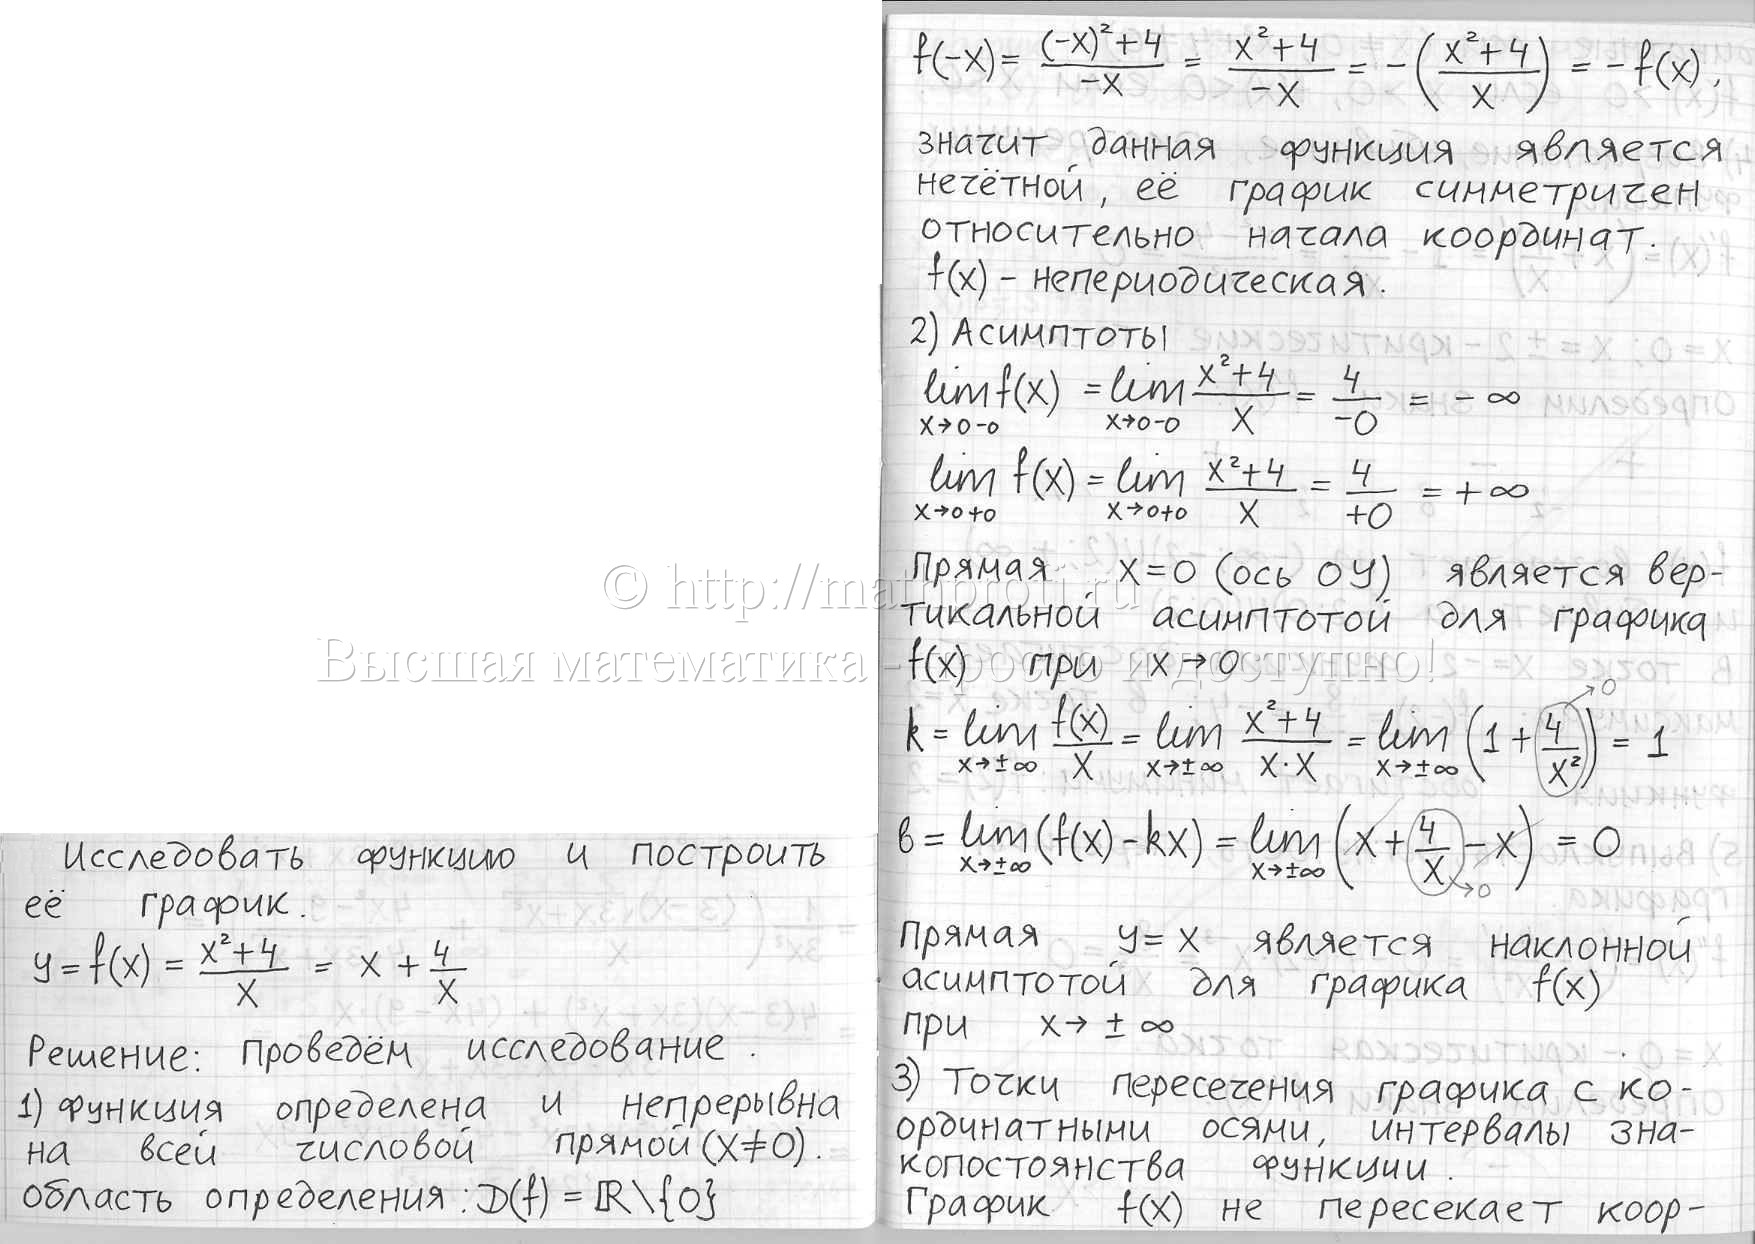 Исследовать функцию и построить
её график.
y = f(x) = (x²+4)/x = x + 4/x
Решение: Проведём исследование.
1) Функция определена и непрерывна
на всей числовой прямой (x≠0).
Область определения: D(f) = ℝ\{0}
f(-x) = ((-x)²+4)/(-x) = (x²+4)/(-x) = -((x²+4)/x) = -f(x),
значит данная функция является
нечётной, её график симметричен
относительно начала координат.
f(x) - непериодическая.
2) Асимптоты
lim f(x) = lim (x²+4)/x = 4/(-0) = -∞
x→0-0 x→0-0
lim f(x) = lim (x²+4)/x = 4/(+0) = +∞
x→0+0 x→0+0
Прямая x=0 (ось OY) является вер-
тикальной асимптотой для графика
f(x) при x→0
k = lim f(x)/x = lim (x²+4)/(x·x) = lim (1 + 4/x²) = 1
x→±∞ x→±∞ x→±∞ →0
b = lim (f(x) - kx) = lim (x + 4/x - x) = 0
x→±∞ x→±∞ →0
Прямая y = x является наклонной
асимптотой для графика f(x)
при x→ ±∞
3) Точки пересечения графика с ко-
ординатными осями, интервалы зна-
копостоянства функции.
График f(x) не пересекает коор-
© http://mathprofi.ru
Высшая математика - просто и доступно!